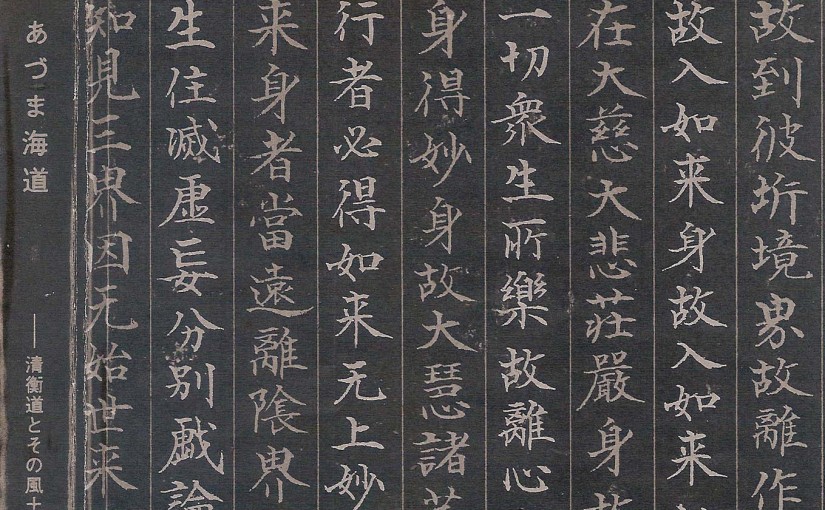 故到彼境界故離作
故入如来身故入如来
在大慈大悲莊嚴身故
一切衆生所樂故離心
身得妙身故大慧諸菩
行者必得如来无上妙
来身者當遠離陰界
生住滅虛妄分別戯論
知見三界因无始世来
あづま海道 ──清衡道とその風土